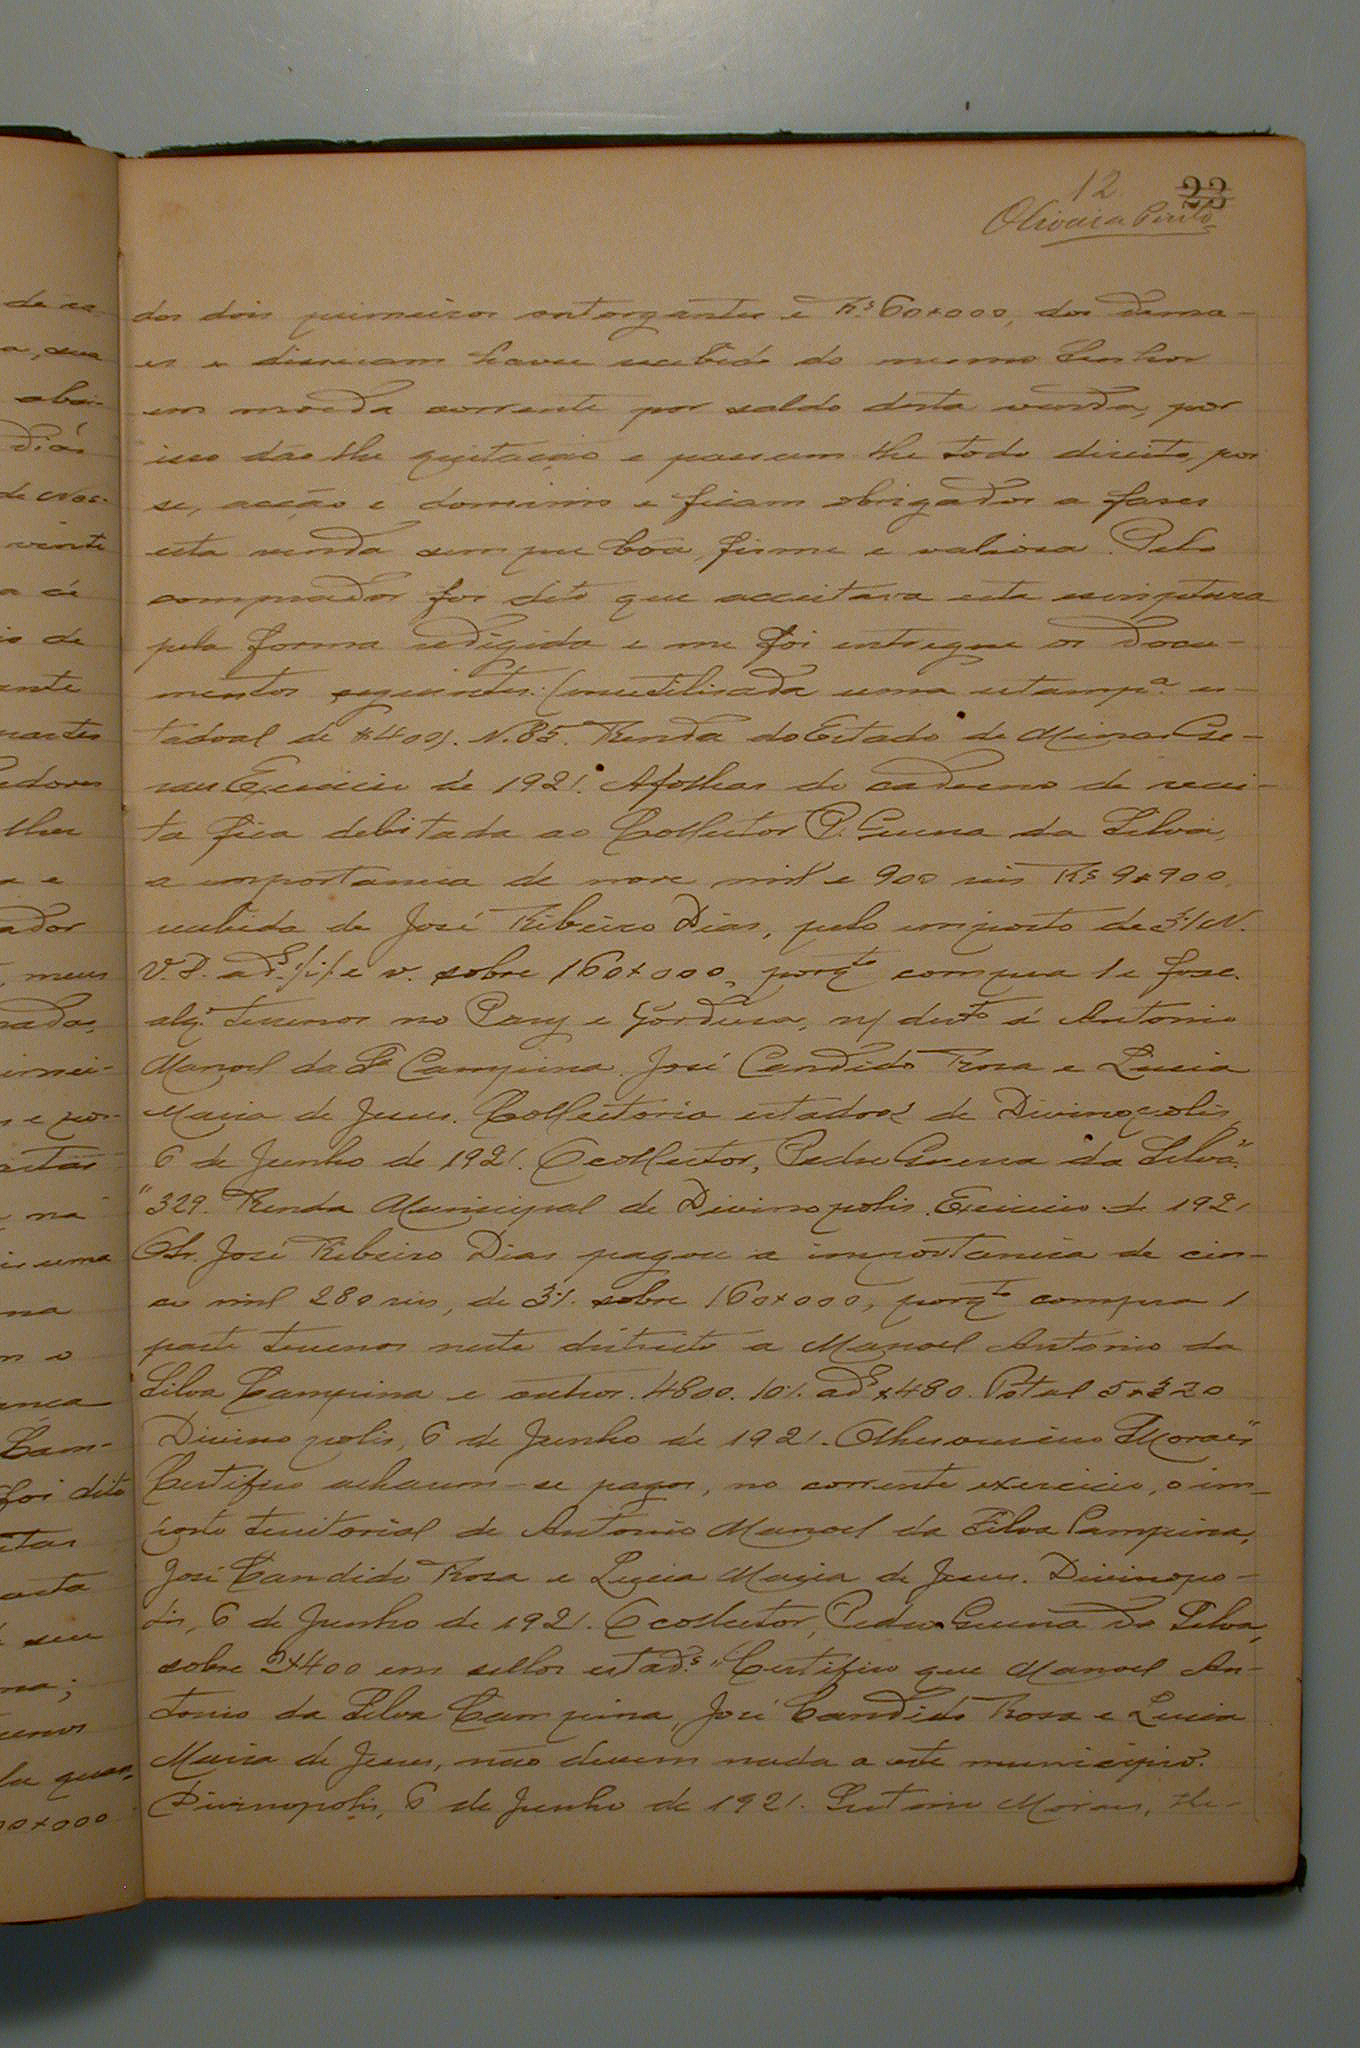 12 22
Oliveira Brito
dos dois primeiros outorgantes e Rs 60$000, dos dema-
es e disseram haver recebido do mesmo Senhor
em moeda corrente por saldo desta venda, por
isso dão lhe quitação e passam lhe todo direito, pos
se, acção e dominio e ficam obrigados a fazer
esta venda sempre bôa, firme e valiosa. Pelo
comprador foi dito que acceitava esta escriptura
pela forma redigida e me foi entregue os docu-
mentos seguintes: (inutilisada uma estampª es-
tadoal de $400). N. 85. Renda do Estado de Minas Ge-
raes Exercicio de 1921. Afolhas do caderno de recei-
ta fica debitada ao Collector P. Guerra da Silva,
a importancia de nove mil e 900 reis Rs 9$900
recebida de José Ribeiro Dias, pelo imposto de 3% N.
V. P. e v. sobre 160$000, porqto compra 1 e
terrenos no e Gordura, n/ destº á Antonio
Manoel da Sª Campina. José Candido Rosa e Lucia
Maria de Jesus. Collectoria estadoal de Divinopolis,
6 de Junho de 1921. O collector, Pedro Guerra da Silva."
"329. Renda Municipal de Divinopolis. Exercicio de 1921
O Sr. José Ribeiro Dias pagou a importancia de cin-
co mil 280 reis, de 3%. sobre 160$000, porqto compra 1
parte terrenos neste districto a Manoel Antonio da
Silva Campina e outros. 4800. 10%. adº $480. Total 5$320
Divinopolis, 6 de Junho de 1921. Moraes"
Certifico acharem-se pagos, no corrente exercicio, o im-
posto territorial de Antonio Manoel da Silva Campina,
José Candido Rosa e Lucia Maria de Jesus. Divinopo-
lis, 6 de Junho de 1921. O collector, Pedro Guerra da Silva,
sobre 2$400 em sellos estads. "Certifico que Manoel An-
tonio da Silva Campina, José Candido Rosa e Lucia
Maria de Jesus, não devem nada a este municipio.
Divinopolis, 6 de Junho de 1921. Moraes, the-